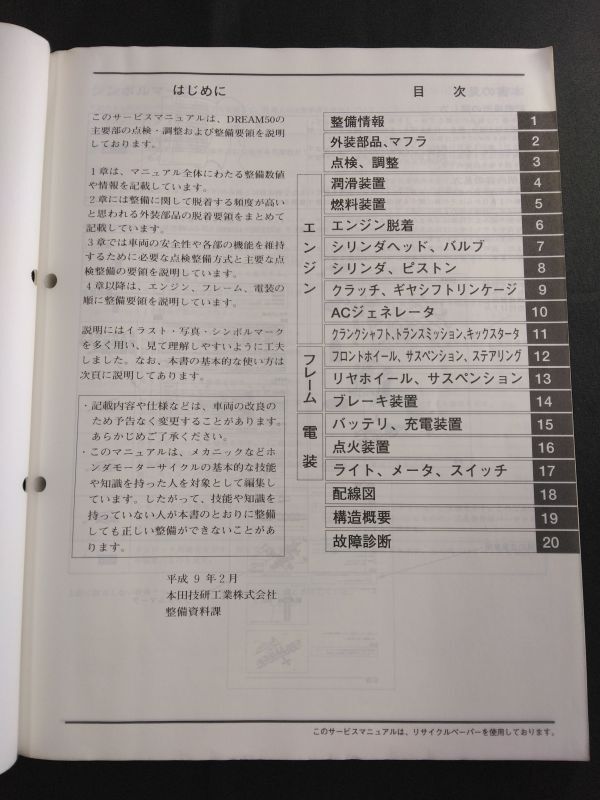 はじめに
このサービスマニュアルは、DREAM50の
主要部の点検・調整および整備要領を説明
しております。
1章は、マニュアル全体にわたる整備数値
や情報を記載しています。
2章には整備に関して脱着する頻度が高い
と思われる外装部品の脱着要領をまとめて
記載しています。
3章では車両の安全性や各部の機能を維持
するために必要な点検整備方式と主要な点
検整備の要領を説明しています。
4章以降は、エンジン、フレーム、電装の
順に整備要領を説明しています。
説明にはイラスト・写真・シンボルマーク
を多く用い、見て理解しやすいように工夫
しました。なお、本書の基本的な使い方は
次頁に説明してあります。
・記載内容や仕様などは、車両の改良の
ため予告なく変更することがあります。
あらかじめご了承ください。
・このマニュアルは、メカニックなどホ
ンダモーターサイクルの基本的な技能
や知識を持った人を対象として編集し
ています。したがって、技能や知識を
持っていない人が本書のとおりに整備
しても正しい整備ができないことがあ
ります。
平成9年2月
本田技研工業株式会社
整備資料課
目 次
整備情報 1
外装部品、マフラ 2
点検、調整 3
エンジン
潤滑装置 4
燃料装置 5
エンジン脱着 6
シリンダヘッド、バルブ 7
シリンダ、ピストン 8
クラッチ、ギヤシフトリンケージ 9
ACジェネレータ 10
クランクシャフト、トランスミッション、キックスタータ 11
フレーム
フロントホイール、サスペンション、ステアリング 12
リヤホイール、サスペンション 13
ブレーキ装置 14
電装
バッテリ、充電装置 15
点火装置 16
ライト、メータ、スイッチ 17
配線図 18
構造概要 19
故障診断 20
このサービスマニュアルは、リサイクルペーパーを使用しております。